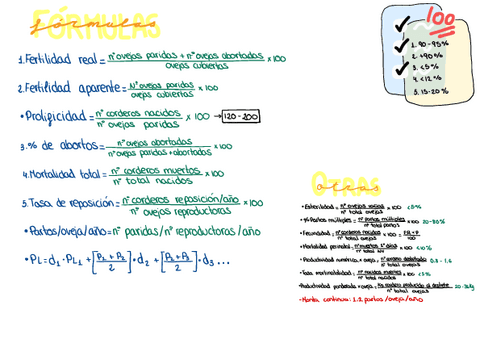 FÓRMULAS
fórmulas
1. Fertilidad real = nº ovejas paridas + nº ovejas abortadas / ovejas cubiertas × 100
2. Fertilidad aparente = Nº ovejas paridas / ovejas cubiertas × 100
• Proligicidad = nº corderos nacidos / nº ovejas paridas × 100 → 120-200
3. % de abortos = nº ovejas abortadas / nº ovejas paridas + abortadas × 100
4. Mortalidad total = nº corderos muertos / nº total nacidos × 100
5. Tasa de reposición = nº corderos reposición/año / nº ovejas reproductoras × 100
• Partos/oveja/año = nº paridas / nº reproductoras / año
• PL = d₁ · PL₁ + [P₁ + P₂ / 2] · d₂ + [P₂ + P₃ / 2] · d₃ ...
100
1. 90-95%
2. +90%
3. <5%
4. <12%
5. 15-20%
OTRAS
otras
• Esterilidad = nº ovejas vacías / nº total ovejas × 100 <5%
• % Partos múltiples = nº partos múltiples / nº total partos × 100
• Fecundidad = nº corderos nacidos / nº total ovejas × 100
• Mortalidad perinatal = × 100 <10%
• Productividad numérica × oveja = / nº total ovejas
• Tasa mortinatalidad = nº nacidos muertos / nº total nacidos × 100 <5%
• Productividad ponderada × oveja = Kg cordero producido al destete / nº total ovejas
• Monta continua: 1.2 partos/oveja/año